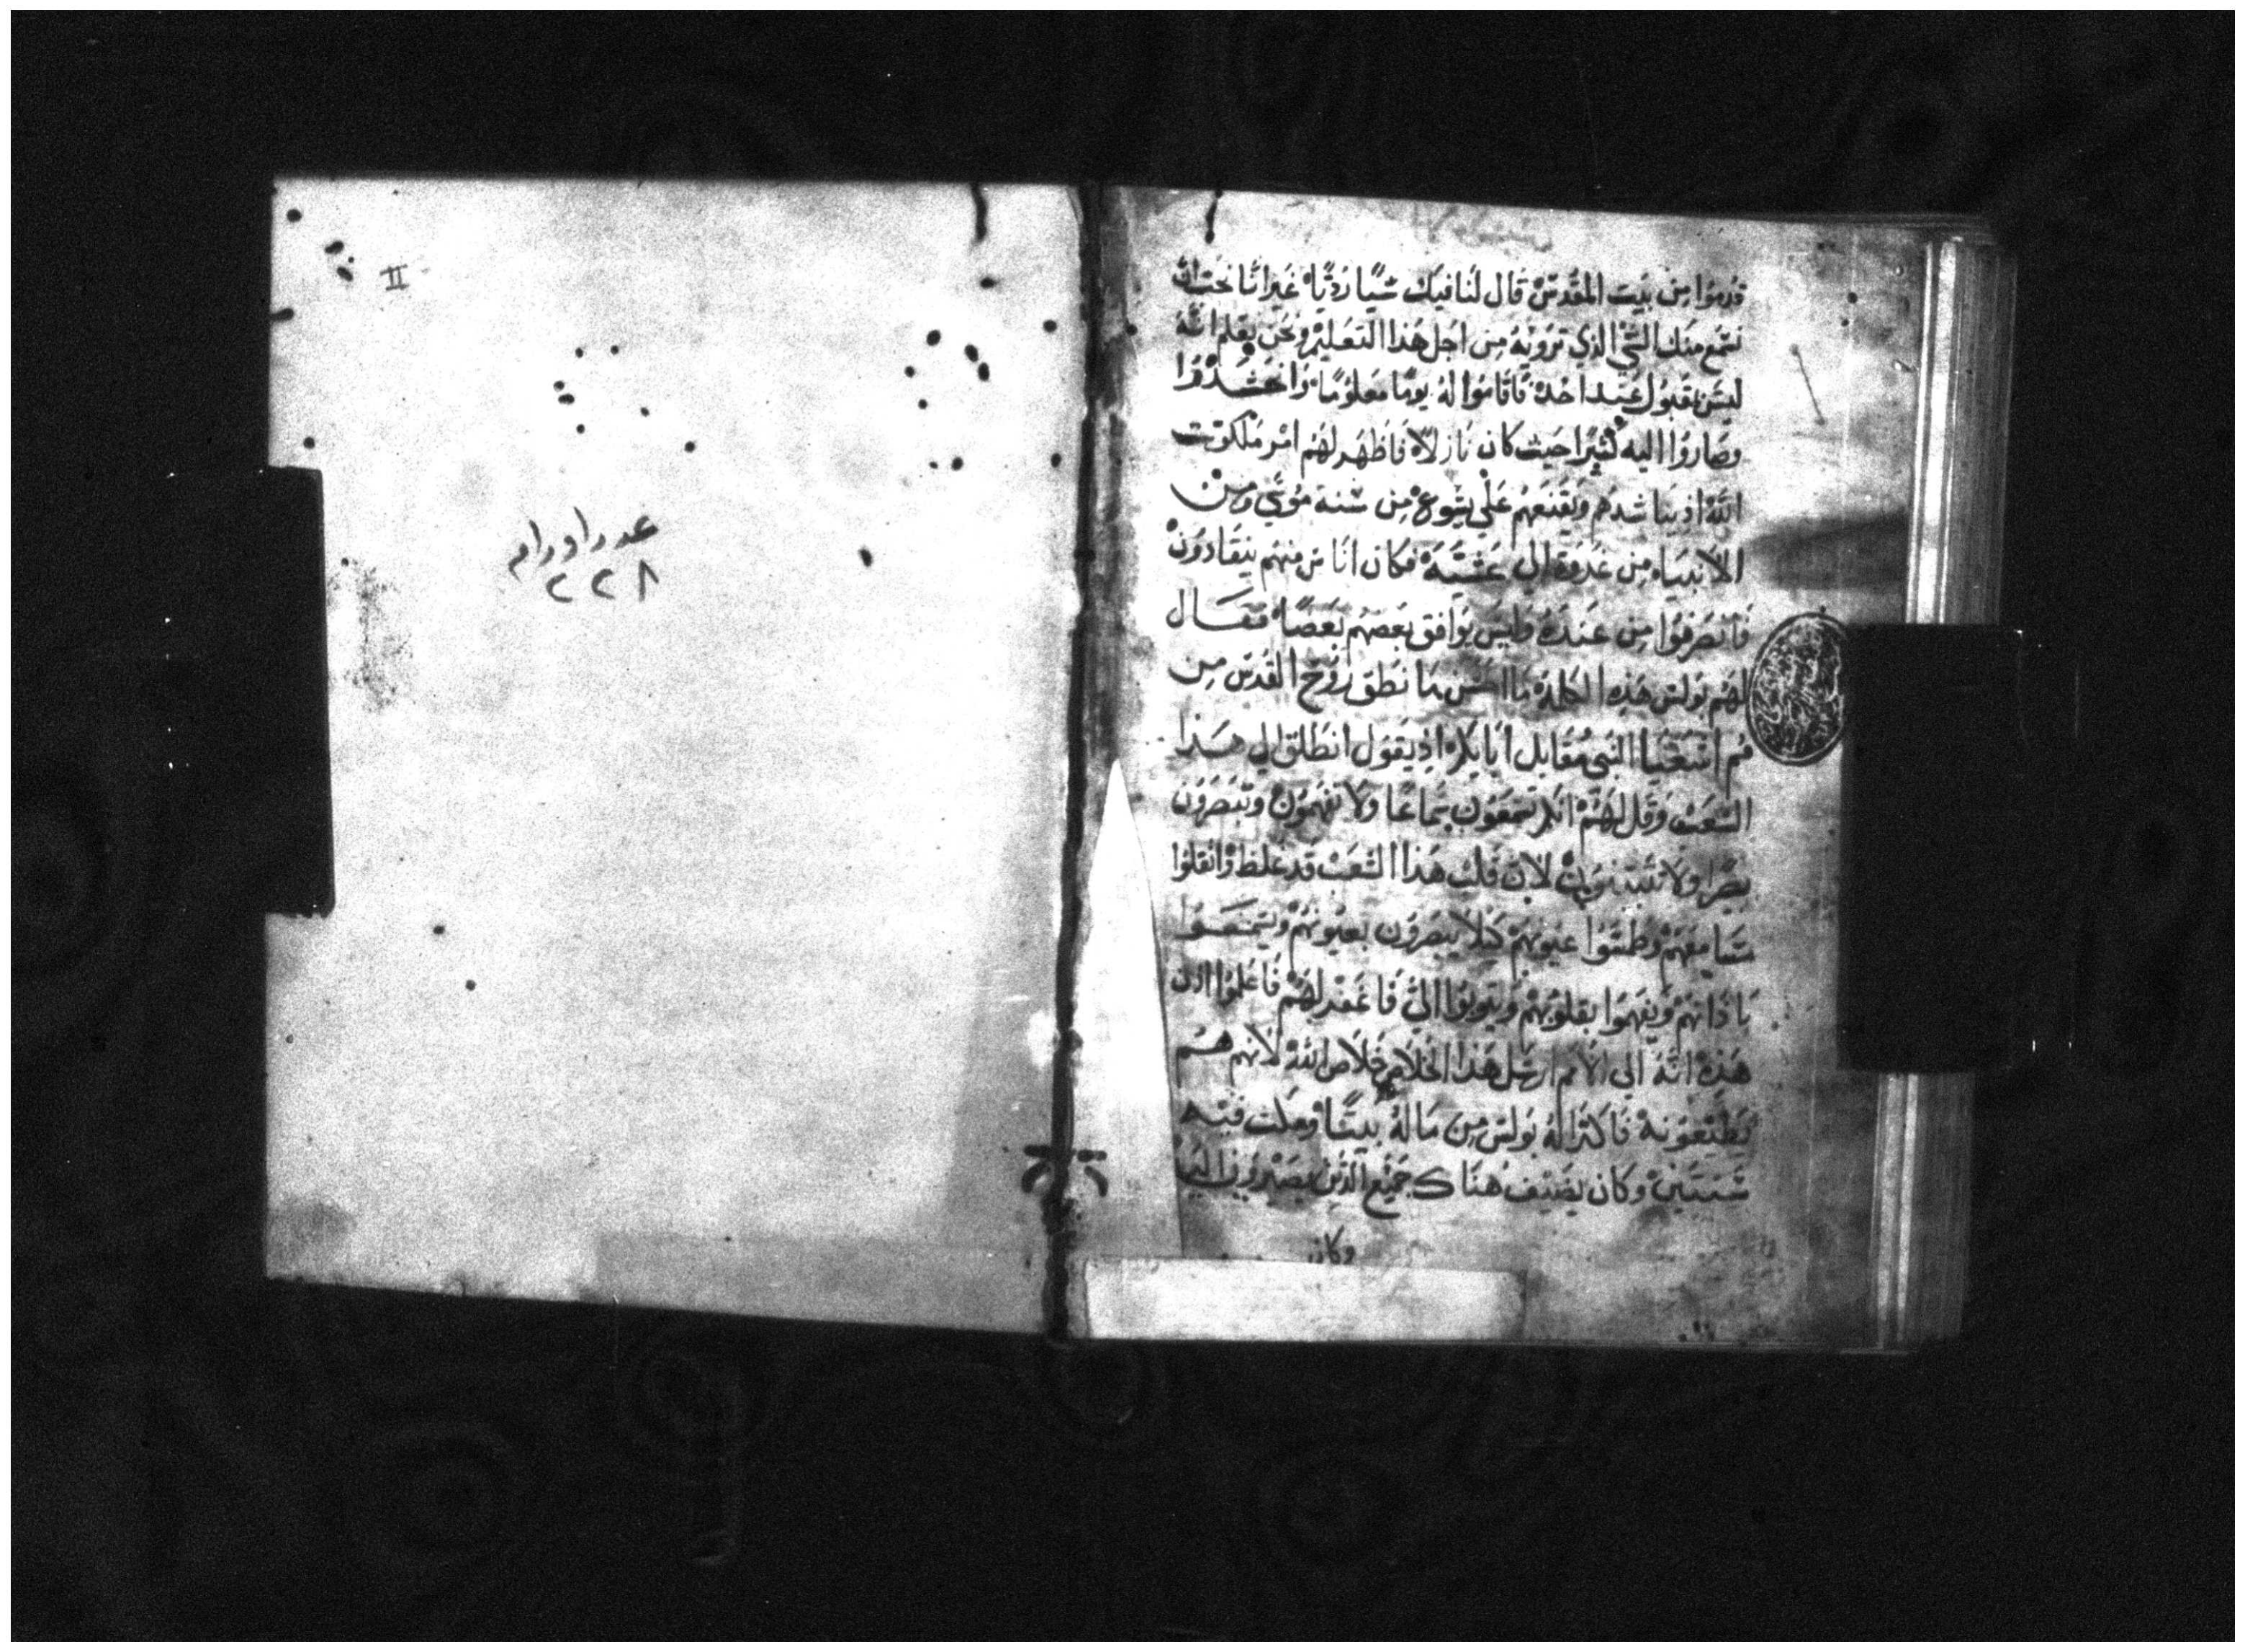 قدموا من بيت المقدس قال لنا فيك شيا رديا غير انا نحب ان
نسمع منك الشي الذي ترويه من اجل هذا التعليم ونحن نعلم انه
ليس بمقبول عند احد فاقاموا له يوما معلوما واحتشدوا
وصاروا اليه كثيرا حيث كان نازلا فاظهر لهم امر ملكوت
الله اذ يناشدهم ويقنعهم علي يشوع من سنة موسي ومن
الانبياء من غدوة الي عشية فكان اناس منهم ينقادون
فانصرفوا من عنده وليس يوافق بعضهم بعضا فقال
لهم بولس هذه الكلمة ما احسن ما نطق روح القدس من
فم اشعيا النبي مقابل ابايكم اذ يقول انطلق الي هذا
الشعب وقل لهم انكم تسمعون سماعا ولا تفهمون وتبصرون
بصرا ولا تتبينون لان قلب هذا الشعب قد غلظ واثقلوا
مسامعهم وطمسوا عيونهم كيلا يبصرون بعيونهم ويسمعوا
باذانهم ويفهموا بقلوبهم ويتوبوا الي فاغفر لهم فاعلموا اذن
هذه انه الي الامم ارسل هذا الخلاص خلاص الله لانهم هم
يطيعونه فاكترا له بولس من ماله بيتا ومكث فيه
سنتين وكان يضيف هناك جميع الذين يصيرون اليه
وكان
II
عدد اوراق
٢٢٨